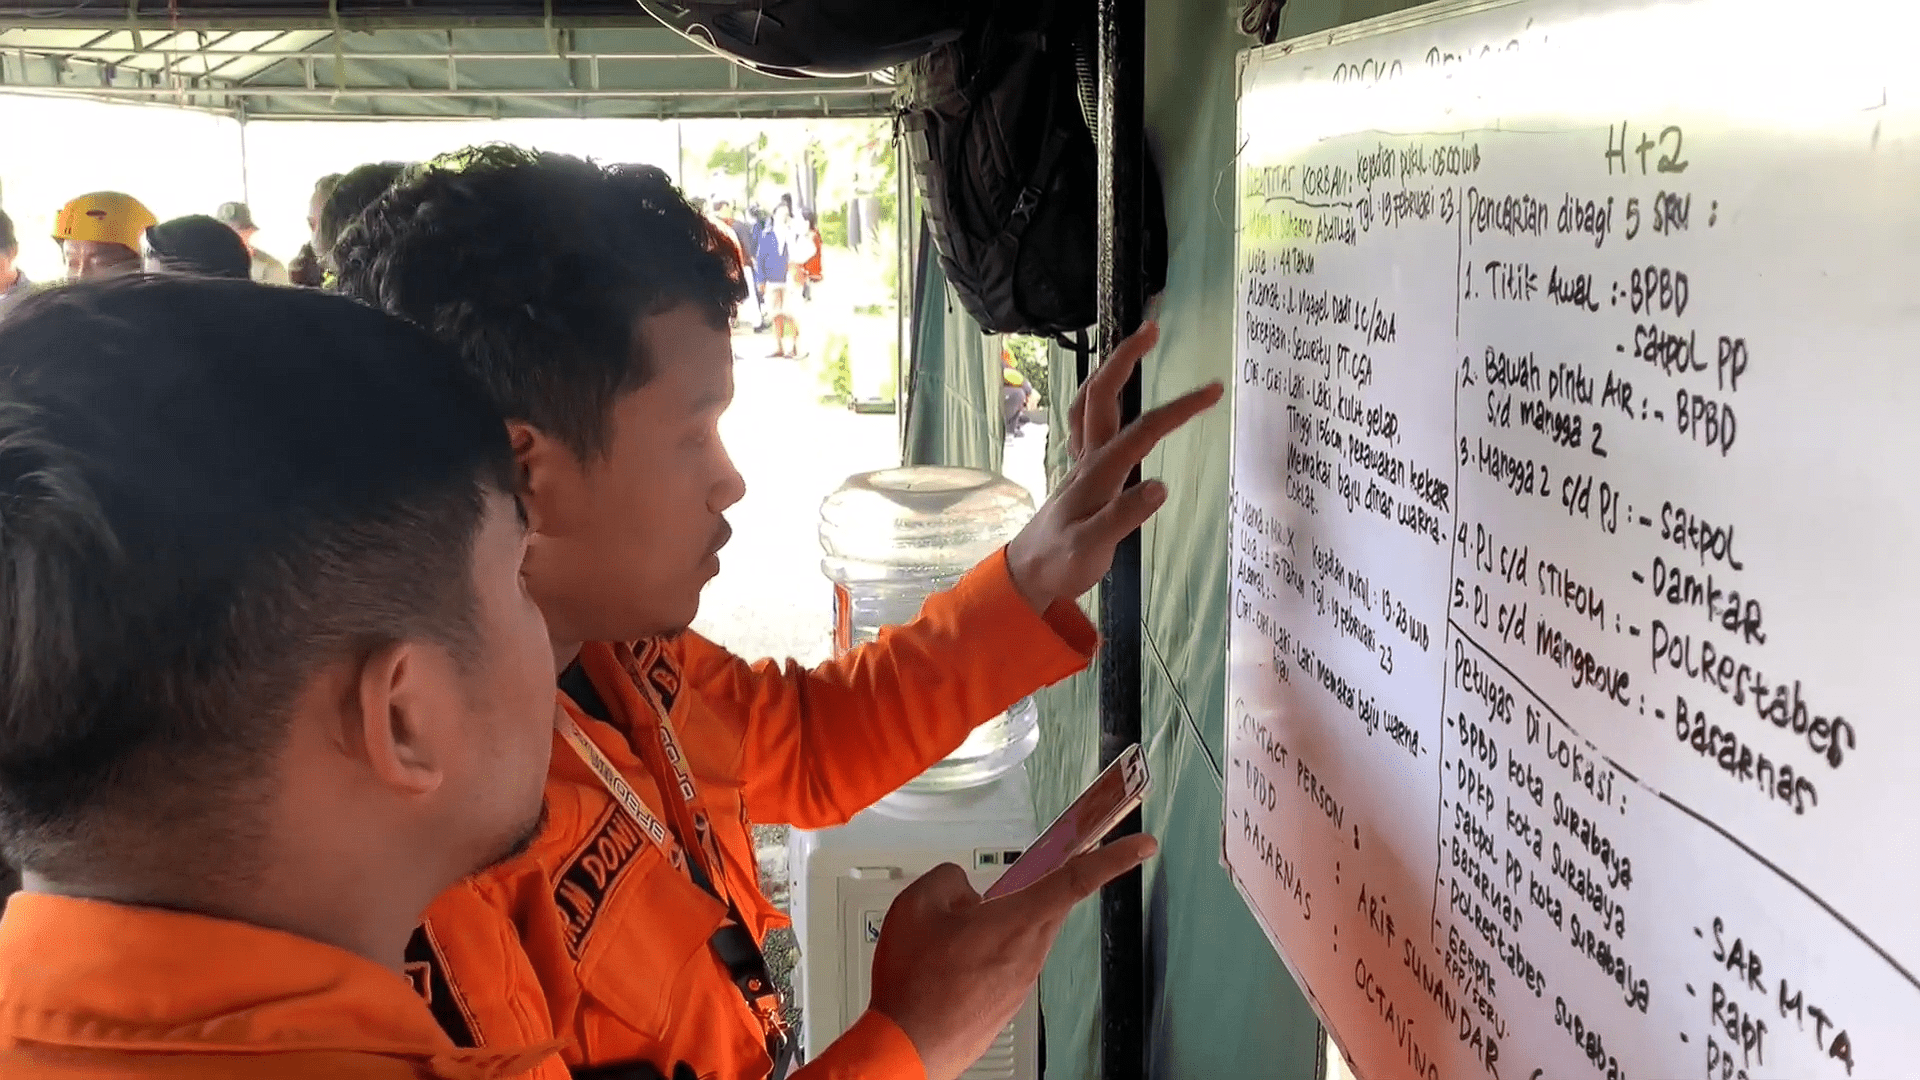 POSKO
H+2
IDENTITAS KORBAN : Kejadian pukul : 05.00 WIB
Tgl : 19 Februari 23
Abdullah
Usia : 44 Tahun
Alamat : Jl. Ngagel Dadi 1C/20A
Pekerjaan : Security PT. CSA
Ciri - ciri : Laki - Laki, kulit gelap,
Tinggi 156cm, perawakan kekar
Memakai baju dinas warna -
Coklat.
2. Nama : MR. X Kejadian pukul : 13.23 WIB
Usia : ± 15 Tahun Tgl : 19 Februari 23
Alamat : -
Ciri - ciri : Laki - Laki memakai baju warna -
hijau.
CONTACT PERSON :
- BPBD : ARIF SUNANDAR
- BASARNAS : OCTAVINO
Pencarian dibagi 5 SRU :
1. Titik Awal : - BPBD
- Satpol PP
2. Bawah Pintu AIR : - BPBD
s/d mangga 2
3. Mangga 2 s/d PJ : - Satpol
- Damkar
4. PJ s/d STIKOM : - POLRestabes
5. PJ s/d mangrove : - Basarnas
Petugas Di Lokasi :
- BPBD kota Surabaya
- DPKP kota Surabaya
- Satpol PP kota Surabaya
- Basarnas
- POLRestabes Surabaya
- Gerpik
- SAR MTA
- Rapi
DONI